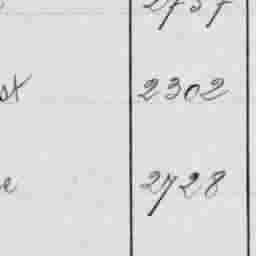 st 2302
e 2728